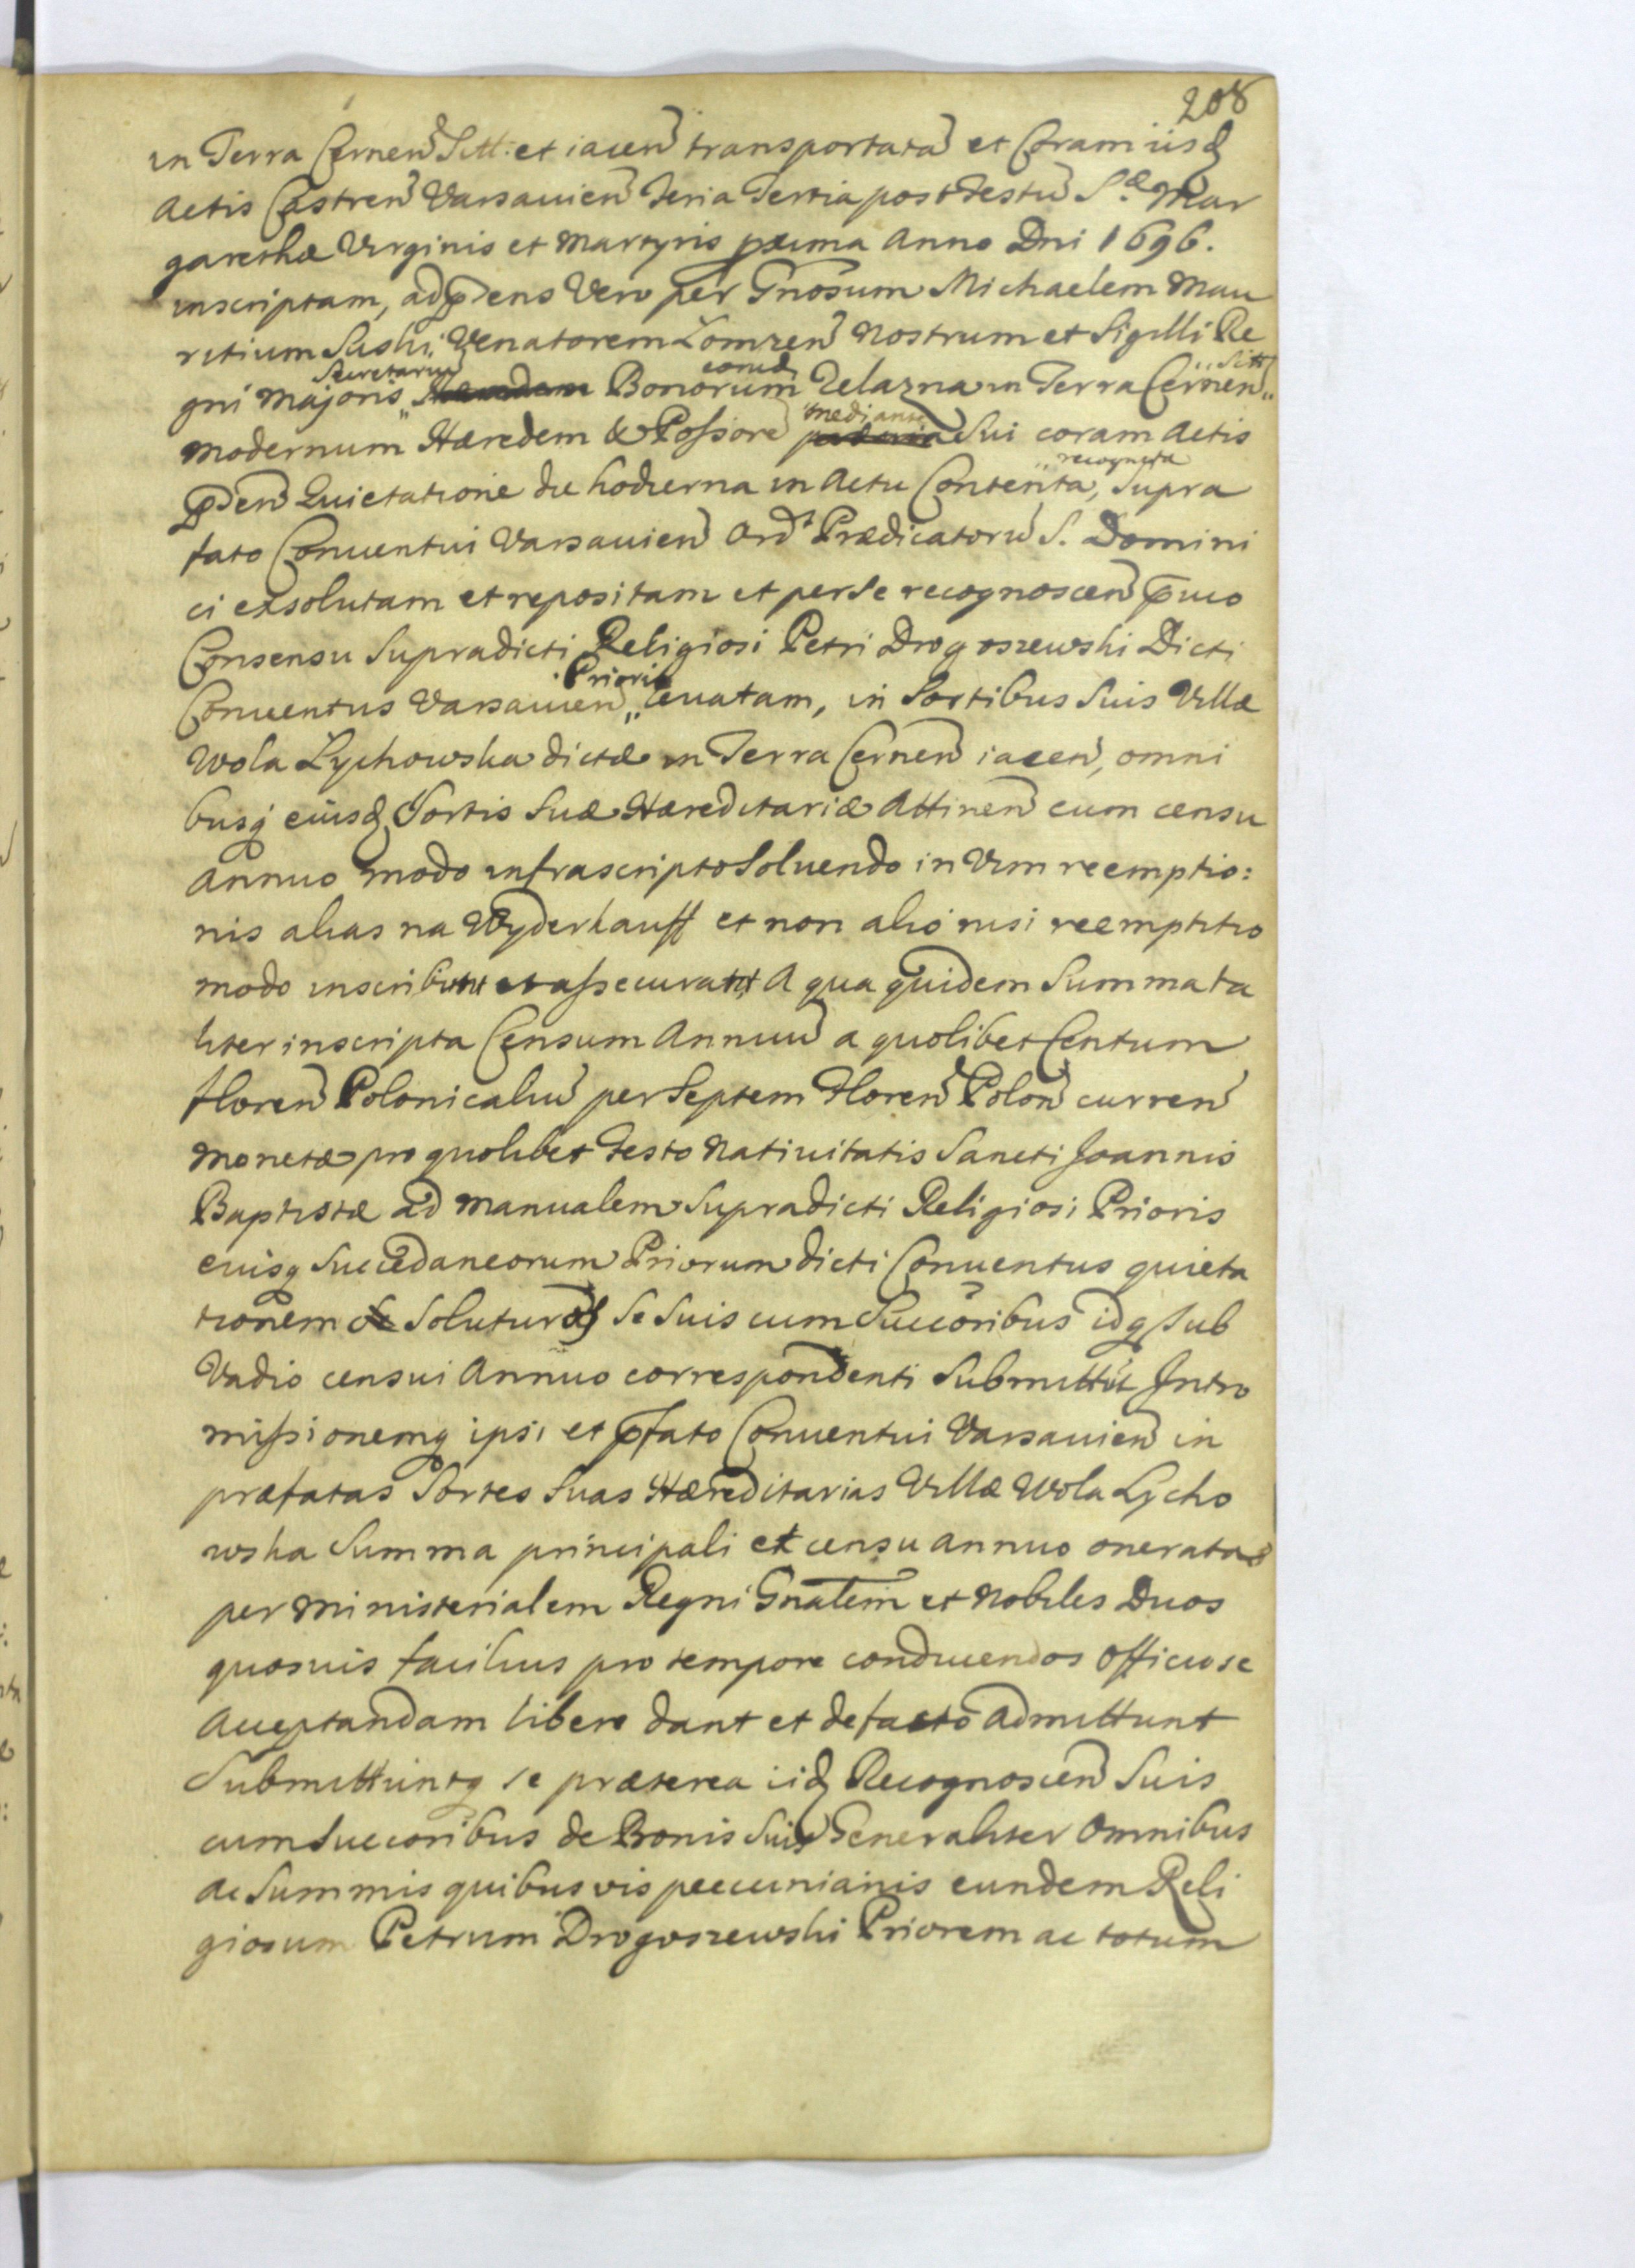 208
in Terra Cernen Sitt: et iacen transportata et Coram iisd
Actis Castren Varsavien Feria Tertia post Festu S.æ Mar
garethæ Virginis et Martyris proxima Anno Dni 1696.
inscriptam, ad pdens Vero per Gnosum Michaelem Mau
ritium Suski Venatorem Łomzen Nostrum et Sigilli Re
gni Majoris Secretariu Bonorum eorund Zelazna in Terra Cernen Sitt
modernum Hæredem & Possore mediante Sui coram Actis
pden Quietatione die hodierna in Actu Contenta, recognita Supra
fato Conventui Varsavien Ord Prædicatoru S. Domini
ci exsolutam et repositam et per se recognoscen
Consensu Supradicti Religiosi Petri Drogoszewski Dicti
Conventus Varsavien Prioris levatam, in Sortibus Suis Villæ
Wola Lychowska dictæ in Terra Cernen iacen, omni
busq eiusd Sortis Suæ Hæreditariæ Attinen cum censu
Annuo modo infrascripto Solvendo in Vim reemptio:
nis alias na Wyderkauff et non alio nisi reemptitio
modo inscribunt et assecurant A qua quidem Summa ta
liter inscripta Censum Annuu a quolibet Centum
Floren Polonicaliu per Septem Floren Polon curren
Monetæ pro quolibet Festo Nativitatis Sancti Joannis
Baptistæ ad Manualem Supradicti Religiosi Prioris
eiusq Succedaneorum Priorum dicti Conventus quieta
tionem Soluturos Se Suis cum Succoribus idq sub
Vadio censui Annuo correspondenti Submittit Intro
missionemq ipsi et pfato Conventui Varsavien in
præfatas Sortes Suas Hæreditarias Villæ Wola Lycho
wska Summa principali et censu annuo oneratas
per Ministerialem Regni Gnalem et Nobiles Duos
quosvis facilius pro tempore conducendos Officiose
Acceptandam libere dant et de facto Admittunt
Submittuntq se præterea iid Recognoscen Suis
cum Succoribus de Bonis Suis Generaliter Omnibus
ac Summis quibusvis pecuniariis eundem Reli
giosum Petrum Drogoszewski Priorem ac totum